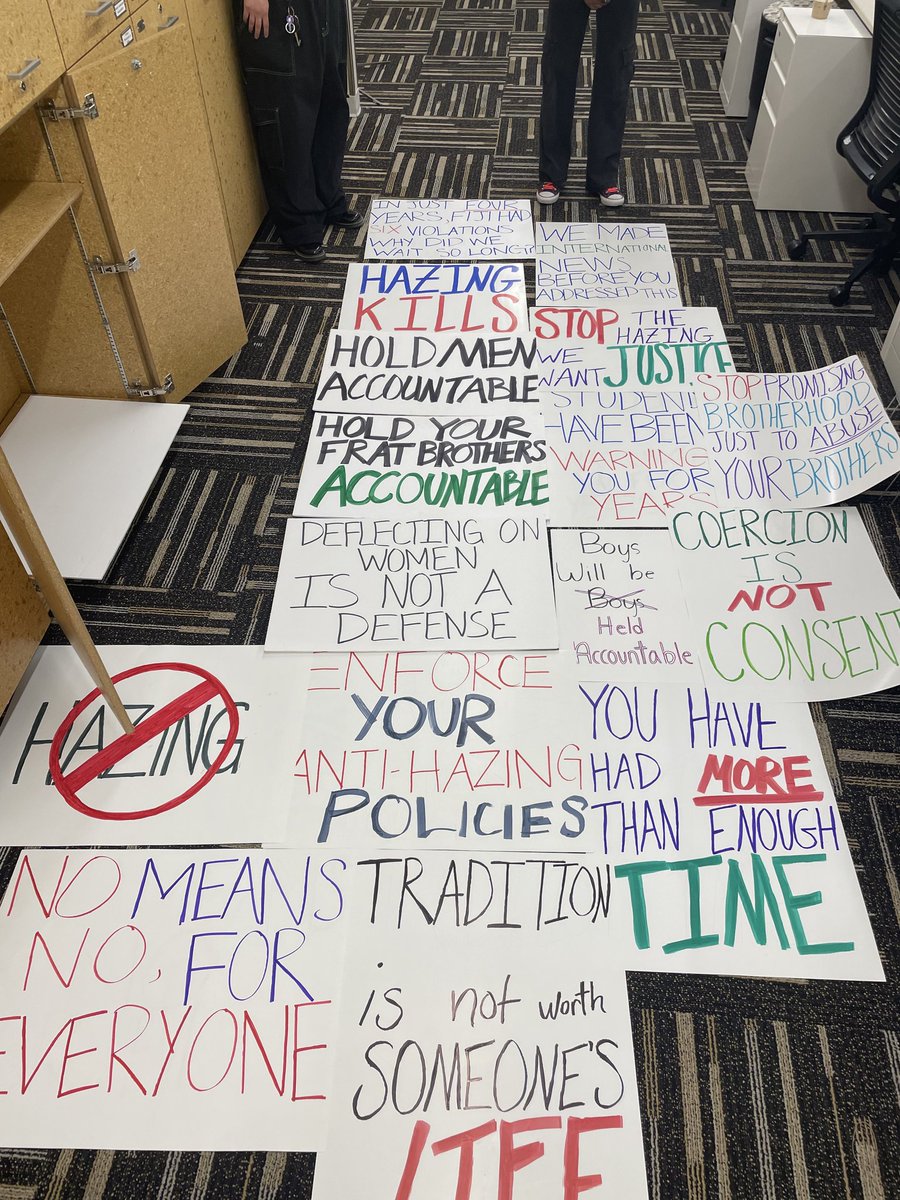 IN JUST FOUR
YEARS, FIJI HAD
SIX VIOLATIONS
WHY DID WE
WAIT SO LONG?
WE MADE
INTERNATIONAL
NEWS
BEFORE YOU
ADDRESSED THIS
HAZING
KILLS
STOP THE
HAZING
WE
WANT JUSTICE
HOLD MEN
ACCOUNTABLE
STUDENTS
HAVE BEEN
WARNING
YOU FOR
YEARS
STOP PROMISING
BROTHERHOOD
JUST TO ABUSE
YOUR BROTHERS
HOLD YOUR
FRAT BROTHERS
ACCOUNTABLE
DEFLECTING ON
WOMEN
IS NOT A
DEFENSE
Boys
Will be
Boys
Held
Accountable
COERCION
IS
NOT
CONSENT
HAZING
ENFORCE
YOUR
ANTI-HAZING
POLICIES
YOU HAVE
HAD MORE
THAN ENOUGH
TIME
NO MEANS
NO, FOR
EVERYONE
TRADITION
is not worth
SOMEONE'S
LIFE